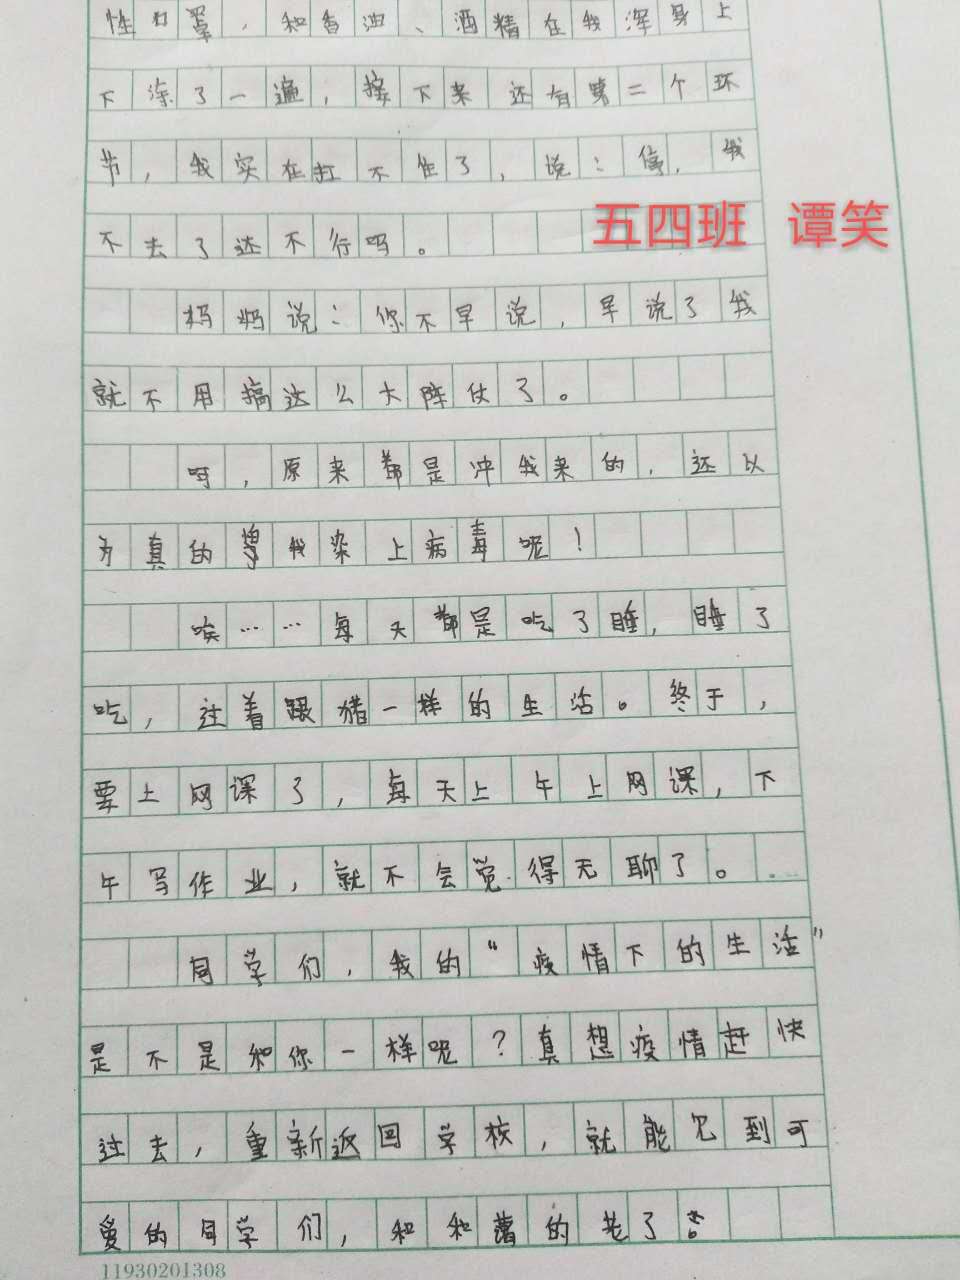 性口罩，和香油、酒精在我浑身上
下涂了一遍，接下来还有第二个环
节，我实在扛不住了，说：停，我
不去了还不行吗。
五四班 谭笑
妈妈说：你不早说，早说了我
就不用搞这么大阵仗了。
呵，原来都是冲我来的，还以
为真的曾我染上病毒呢！
唉……每天都是吃了睡，睡了
吃，过着跟猪一样的生活。终于，
要上网课了，每天上午上网课，下
午写作业，就不会觉得无聊了。
同学们，我的“疫情下的生活”
是不是和你一样呢？真想疫情赶快
过去，重新返回学校，就能见到可
爱的同学们，和和蔼的老了
11930201308